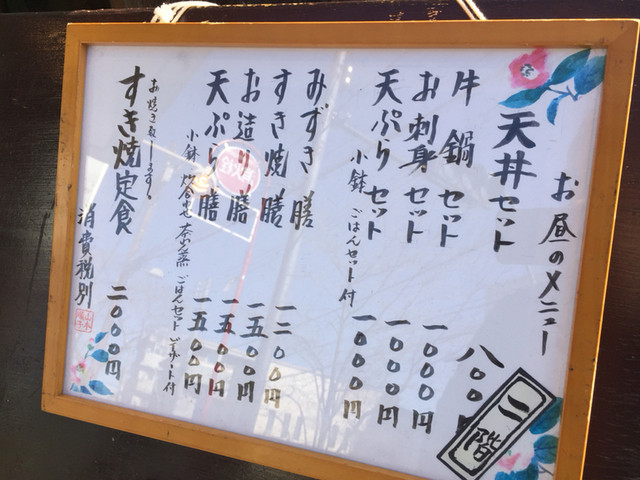 お昼のメニュー
天丼セット 八〇〇円
牛鍋セット 一〇〇〇円
お刺身セット 一〇〇〇円
天ぷらセット 一〇〇〇円
小鉢 ごはんセット付
みずき膳 一二〇〇円
すき焼膳 一五〇〇円
お造り膳 一五〇〇円
天ぷら膳 一五〇〇円
小鉢 炊合せ 茶碗蒸 ごはんセット デザート付
すき焼定食 二〇〇〇円
お焼き致します。
消費税別
二階